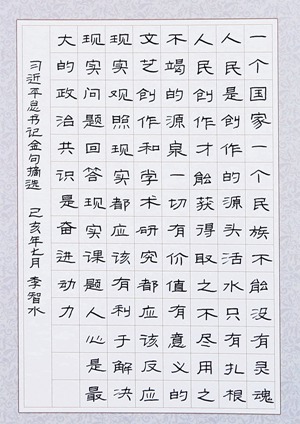 一个国家一个民族不能没有灵魂
人民是创作的源头活水只有扎根
人民创作才能获得取之不尽用之
不竭的源泉一切有价值有意义的
文艺创作和学术研究都应该反应
现实观照现实都应该有利于解决
现实问题回答现实课题人心是最
大的政治共识是奋进动力
习近平总书记金句摘选 己亥年七月 李智水